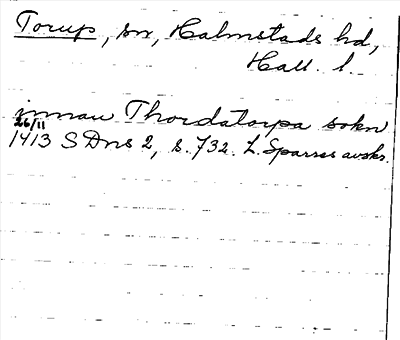 Torup, sn, Halmstads hd,
Hall. l.
innan Thordatorpa sokn
26/11
1413 SDns 2, s. 732. L. Sparres avskr.